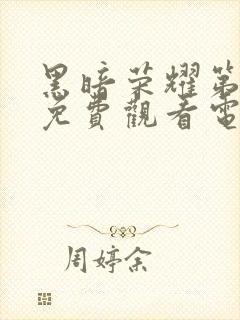 黑暗荣耀第
免費觀看電
周婷余